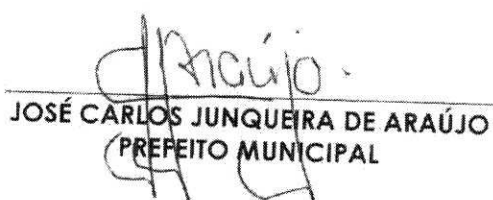 Araújo.
JOSÉ CARLOS JUNQUEIRA DE ARAÚJO
PREFEITO MUNICIPAL